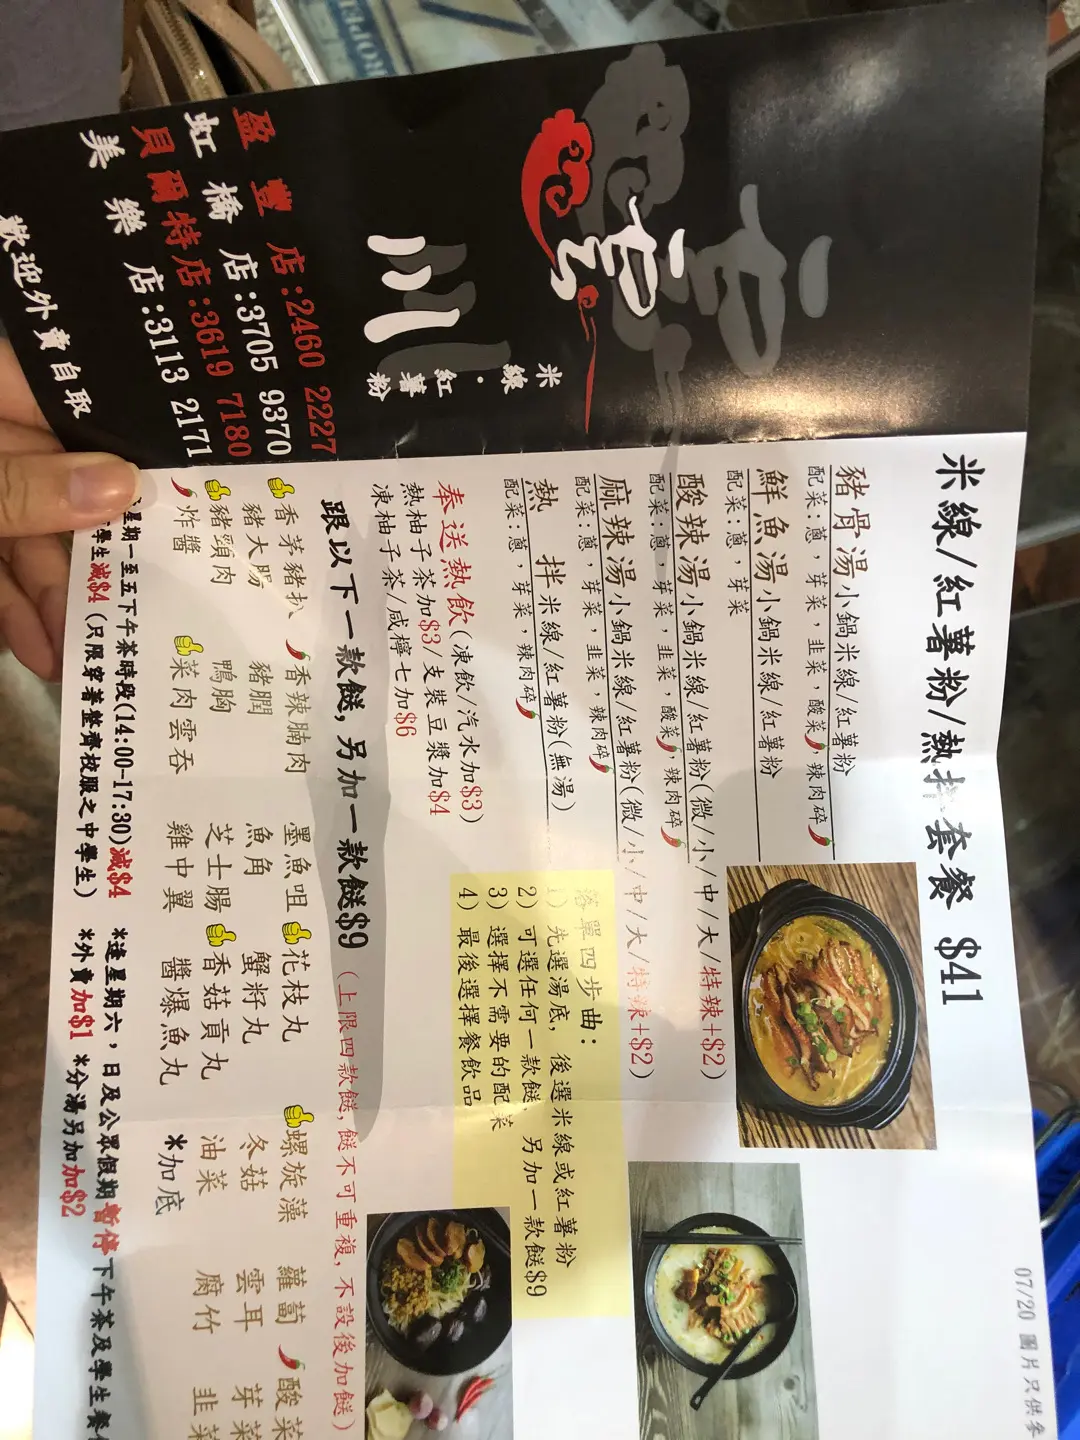 雲川
米線·紅薯粉
盈豐店:2460 2227
虹橋店:3705 9370
貝爾特店:3619 7180
美樂店:3113 2171
歡迎外賣自取
米線/紅薯粉/熱拌套餐 $41
豬骨湯小鍋米線/紅薯粉
配菜:蔥,芽菜,韭菜,酸菜,辣肉碎
鮮魚湯小鍋米線/紅薯粉
配菜:蔥,芽菜
酸辣湯小鍋米線/紅薯粉(微/小/中/大/特辣+$2)
配菜:蔥,芽菜,韭菜,酸菜,辣肉碎
麻辣湯小鍋米線/紅薯粉(微/小/中/大/特辣+$2)
配菜:蔥,芽菜,韭菜,辣肉碎
熱 拌米線/紅薯粉(無湯)
配菜:蔥,芽菜,辣肉碎
奉送熱飲(凍飲/汽水加$3)
熱柚子茶加$3/支裝豆漿加$4
凍柚子茶/咸檸七加$6
落單四步曲:
1) 先選湯底, 後選米線或紅薯粉
2) 可選任何一款餸, 另加一款餸$9
3) 選擇不需要的配菜
4) 最後選擇餐飲品
跟以下一款餸,另加一款餸$9 (上限四款餸,餸不可重複,不設後加餸)
香茅豬扒 香辣腩肉 墨魚咀 花枝丸 螺旋藻 蘿蔔 酸菜
豬大腸 豬膶 魚角 蟹籽丸 冬菇 雲耳 芽菜
豬頸肉 鴨胸 芝士腸 香菇貢丸 油菜 腐竹 韭菜
炸醬 菜肉雲吞 雞中翼 醬爆魚丸 *加底
星期一至五下午茶時段(14:00-17:30)減$4 *逢星期六,日及公眾假期暫停下午茶及學生餐
學生減$4 (只限穿著整齊校服之中學生) *外賣加$1 *分湯另加加$2
07/20 圖片只供參